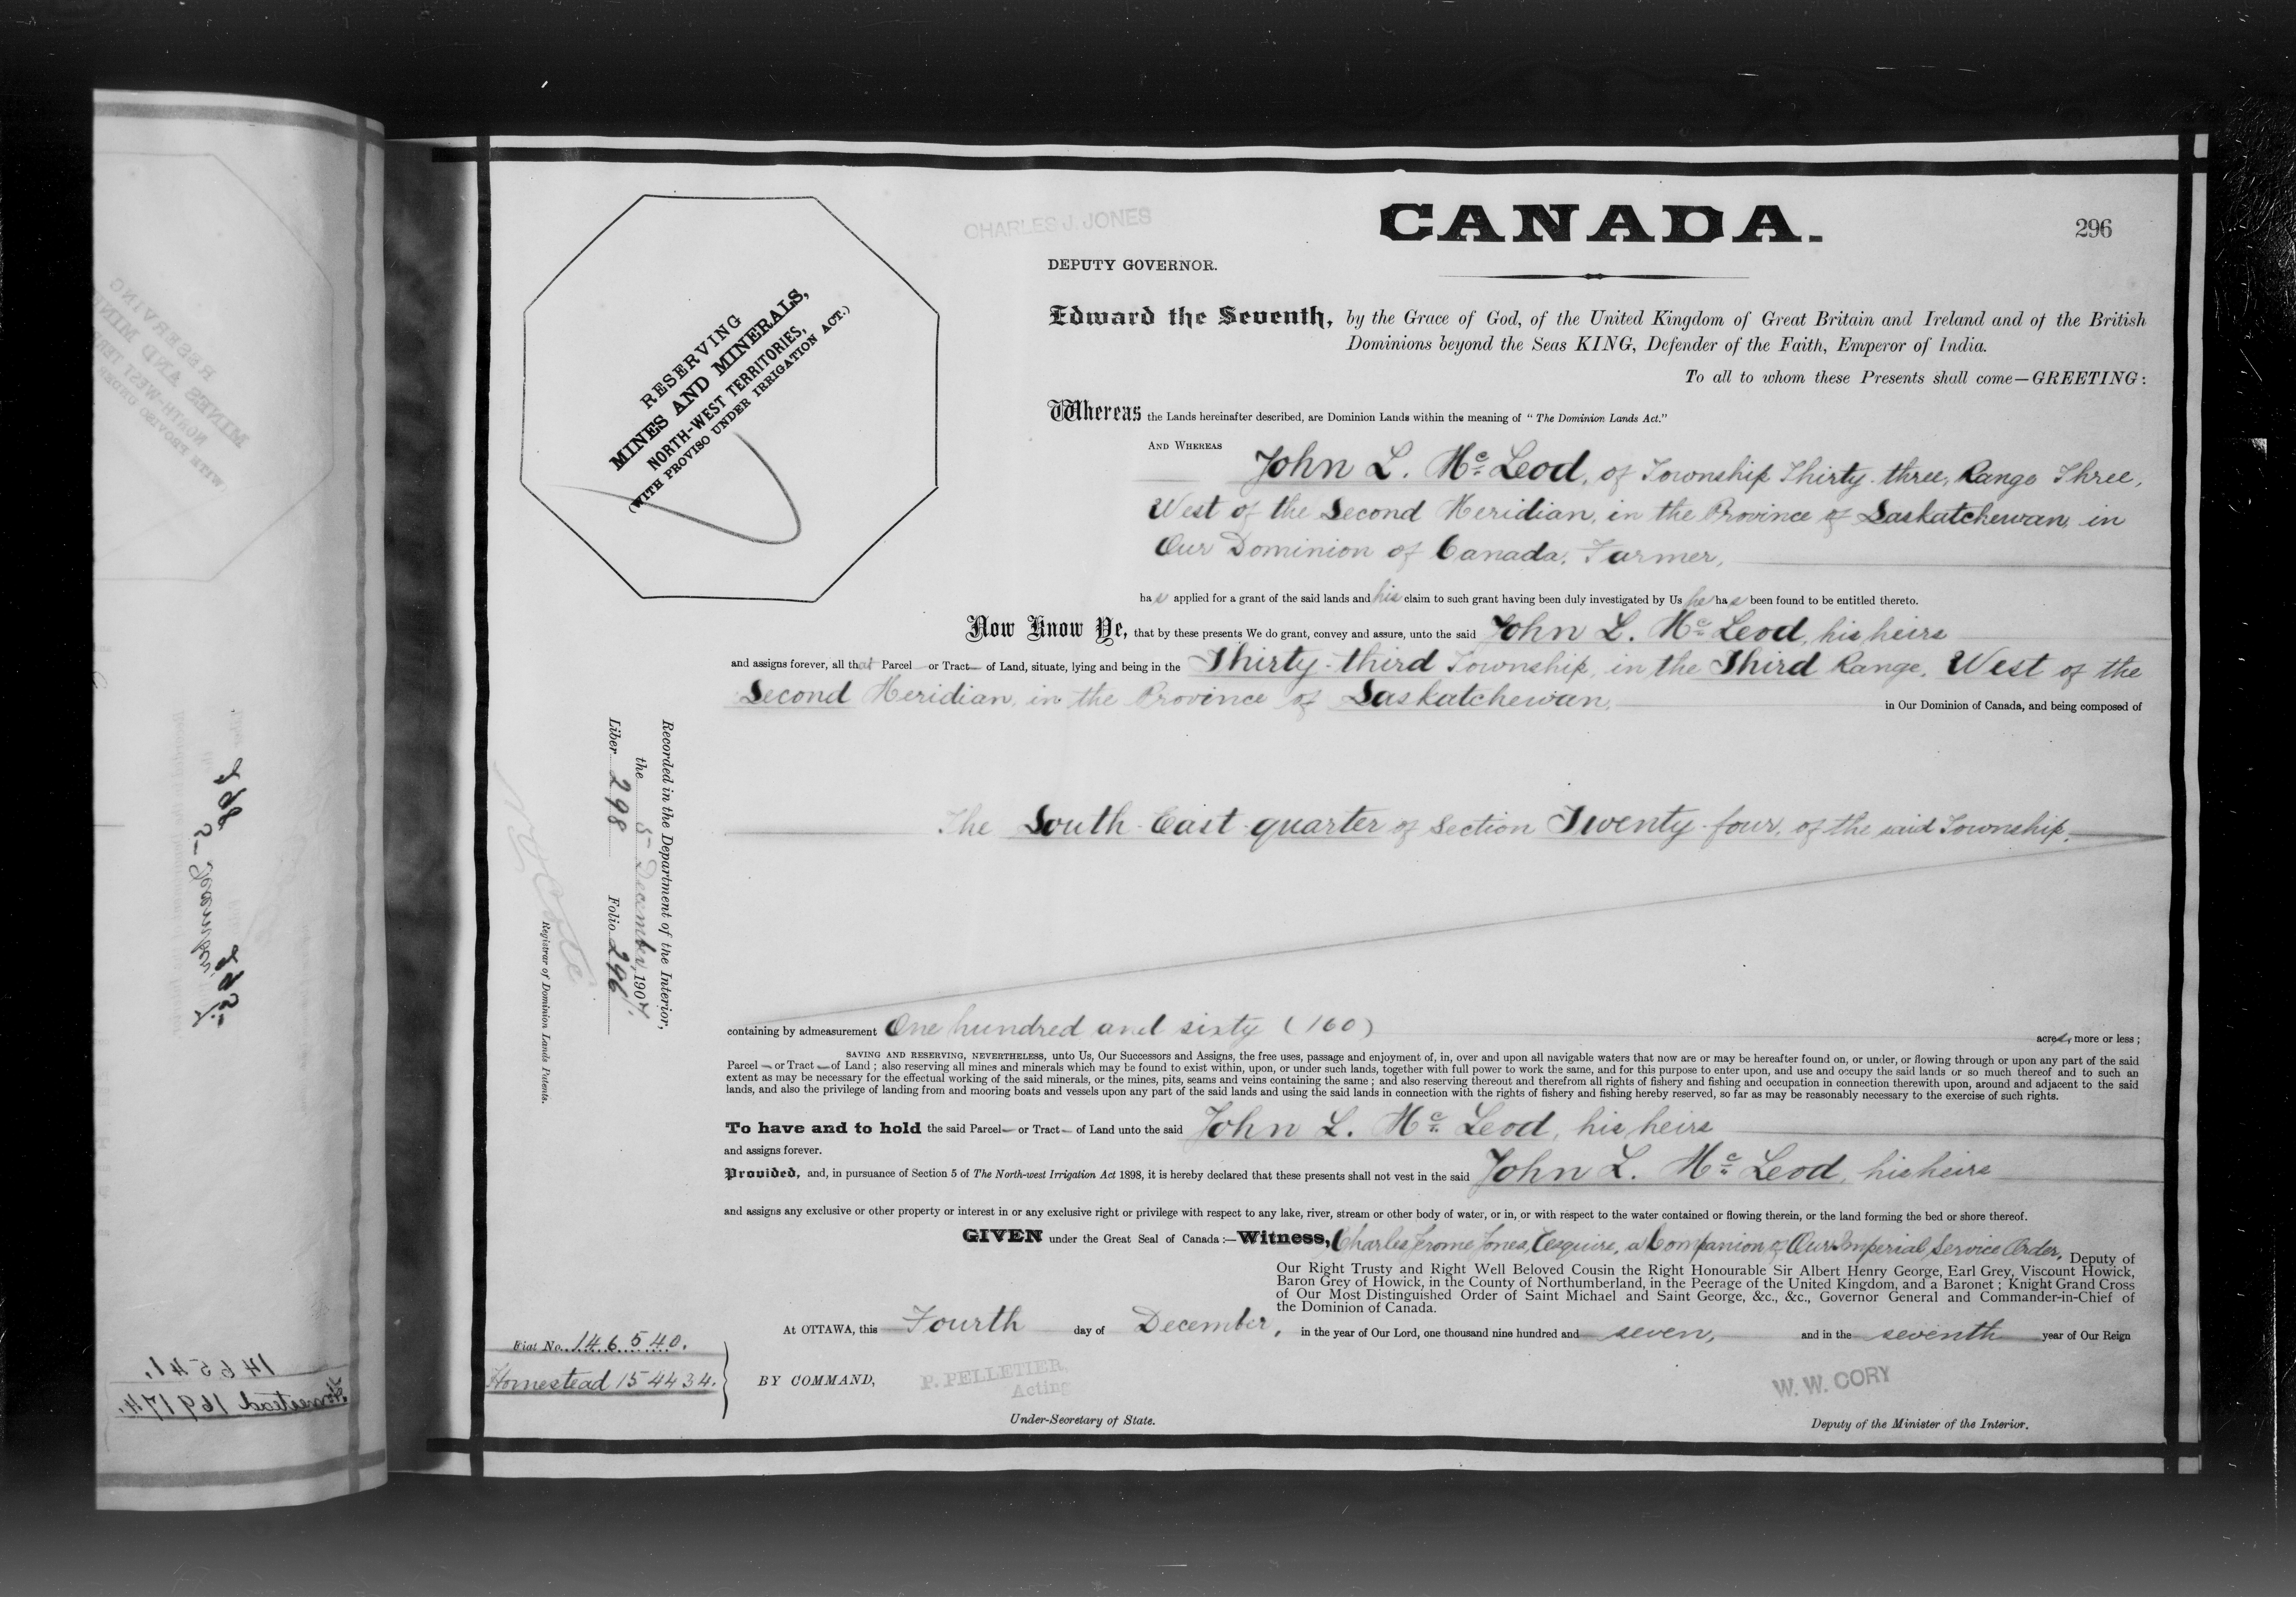 CHARLES J. JONES
CANADA.
296
DEPUTY GOVERNOR.
RESERVING
MINES AND MINERALS,
NORTH-WEST TERRITORIES,
(WITH PROVISO UNDER IRRIGATION ACT.)
Edward the Seventh, by the Grace of God, of the United Kingdom of Great Britain and Ireland and of the British
Dominions beyond the Seas KING, Defender of the Faith, Emperor of India.
To all to whom these Presents shall come—GREETING:
Whereas the Lands hereinafter described, are Dominion Lands within the meaning of "The Dominion Lands Act."
AND WHEREAS
John L. Mc Leod, of Township Thirty-three, Range Three,
West of the Second Meridian, in the Province of Saskatchewan, in
Our Dominion of Canada, Farmer,
has applied for a grant of the said lands and his claim to such grant having been duly investigated by Us he has been found to be entitled thereto.
Now Know Ye, that by these presents We do grant, convey and assure, unto the said John L. Mc Leod, his heirs
and assigns forever, all that Parcel — or Tract — of Land, situate, lying and being in the Thirty-third Township, in the Third Range, West of the
Second Meridian, in the Province of Saskatchewan, in Our Dominion of Canada, and being composed of
The South-East-quarter of Section Twenty-four, of the said Township,
Recorded in the Department of the Interior,
the 5 December, 1907.
Liber 298 Folio 296
N. O. Coté
Registrar of Dominion Lands Patents.
containing by admeasurement One hundred and sixty (160) acres, more or less;
SAVING AND RESERVING, NEVERTHELESS, unto Us, Our Successors and Assigns, the free uses, passage and enjoyment of, in, over and upon all navigable waters that now are or may be hereafter found on, or under, or flowing through or upon any part of the said
Parcel — or Tract — of Land; also reserving all mines and minerals which may be found to exist within, upon, or under such lands, together with full power to work the same, and for this purpose to enter upon, and use and occupy the said lands or so much thereof and to such an
extent as may be necessary for the effectual working of the said minerals, or the mines, pits, seams and veins containing the same; and also reserving thereout and therefrom all rights of fishery and fishing and occupation in connection therewith upon, around and adjacent to the said
lands, and also the privilege of landing from and mooring boats and vessels upon any part of the said lands and using the said lands in connection with the rights of fishery and fishing hereby reserved, so far as may be reasonably necessary to the exercise of such rights.
To have and to hold the said Parcel — or Tract — of Land unto the said John L. Mc Leod, his heirs
and assigns forever.
Provided, and, in pursuance of Section 5 of The North-west Irrigation Act 1898, it is hereby declared that these presents shall not vest in the said John L. Mc Leod, his heirs
and assigns any exclusive or other property or interest in or any exclusive right or privilege with respect to any lake, river, stream or other body of water, or in, or with respect to the water contained or flowing therein, or the land forming the bed or shore thereof.
GIVEN under the Great Seal of Canada:—Witness, Charles Jerome Jones, Esquire, a Companion of Our Imperial Service Order, Deputy of
Our Right Trusty and Right Well Beloved Cousin the Right Honourable Sir Albert Henry George, Earl Grey, Viscount Howick,
Baron Grey of Howick, in the County of Northumberland, in the Peerage of the United Kingdom, and a Baronet; Knight Grand Cross
of Our Most Distinguished Order of Saint Michael and Saint George, &c., &c., Governor General and Commander-in-Chief of
the Dominion of Canada.
At OTTAWA, this Fourth day of December, in the year of Our Lord, one thousand nine hundred and seven, and in the seventh year of Our Reign
Fiat No. 146540.
Homestead 154434.
BY COMMAND,
P. PELLETIER,
Acting
Under-Secretary of State.
W. W. CORY
Deputy of the Minister of the Interior.
146541.
Homestead 169174.